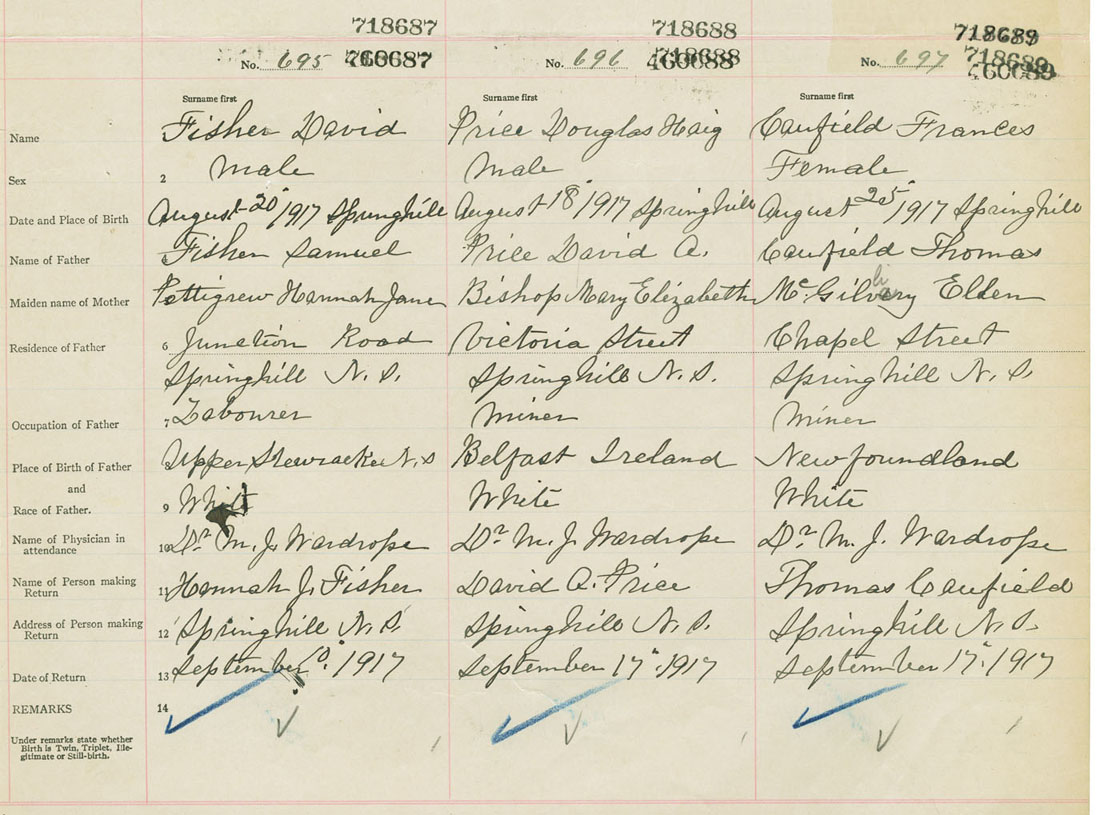 718687 718688 718689
No. 695 No. 696 718688 No. 697 718689
460688 460689
Surname first Surname first Surname first
Name Fisher David Price Douglas Haig Caufield Frances
Sex 2 Male Male Female
Date and Place of Birth August 20/1917 Springhill August 18/1917 Springhill August 25/1917 Springhill
Name of Father Fisher Samuel Price David A. Caufield Thomas
Maiden name of Mother Pettigrew Hannah Jane Bishop Mary Elizabeth Elden
Residence of Father 6 Junction Road Victoria Street Chapel Street
Springhill N. S. Springhill N. S. Springhill N. S.
Occupation of Father 7 Labourer Miner Miner
Place of Birth of Father Upper N. S Belfast Ireland Newfoundland
and
Race of Father. 9 White White White
Name of Physician in
attendance 10 Dr. M. J. Wardrope Dr. M. J. Wardrope Dr. M. J. Wardrope
Name of Person making
Return 11 Hannah J. Fisher David A. Price Thomas Caufield
Address of Person making
Return 12 Springhill N. S. Springhill N. S. Springhill N. S.
Date of Return 13 September 1917 September 17". 1917 September 17". 1917
REMARKS 14
Under remarks state whether
Birth is Twin, Triplet, Ille-
gitimate or Still-birth.